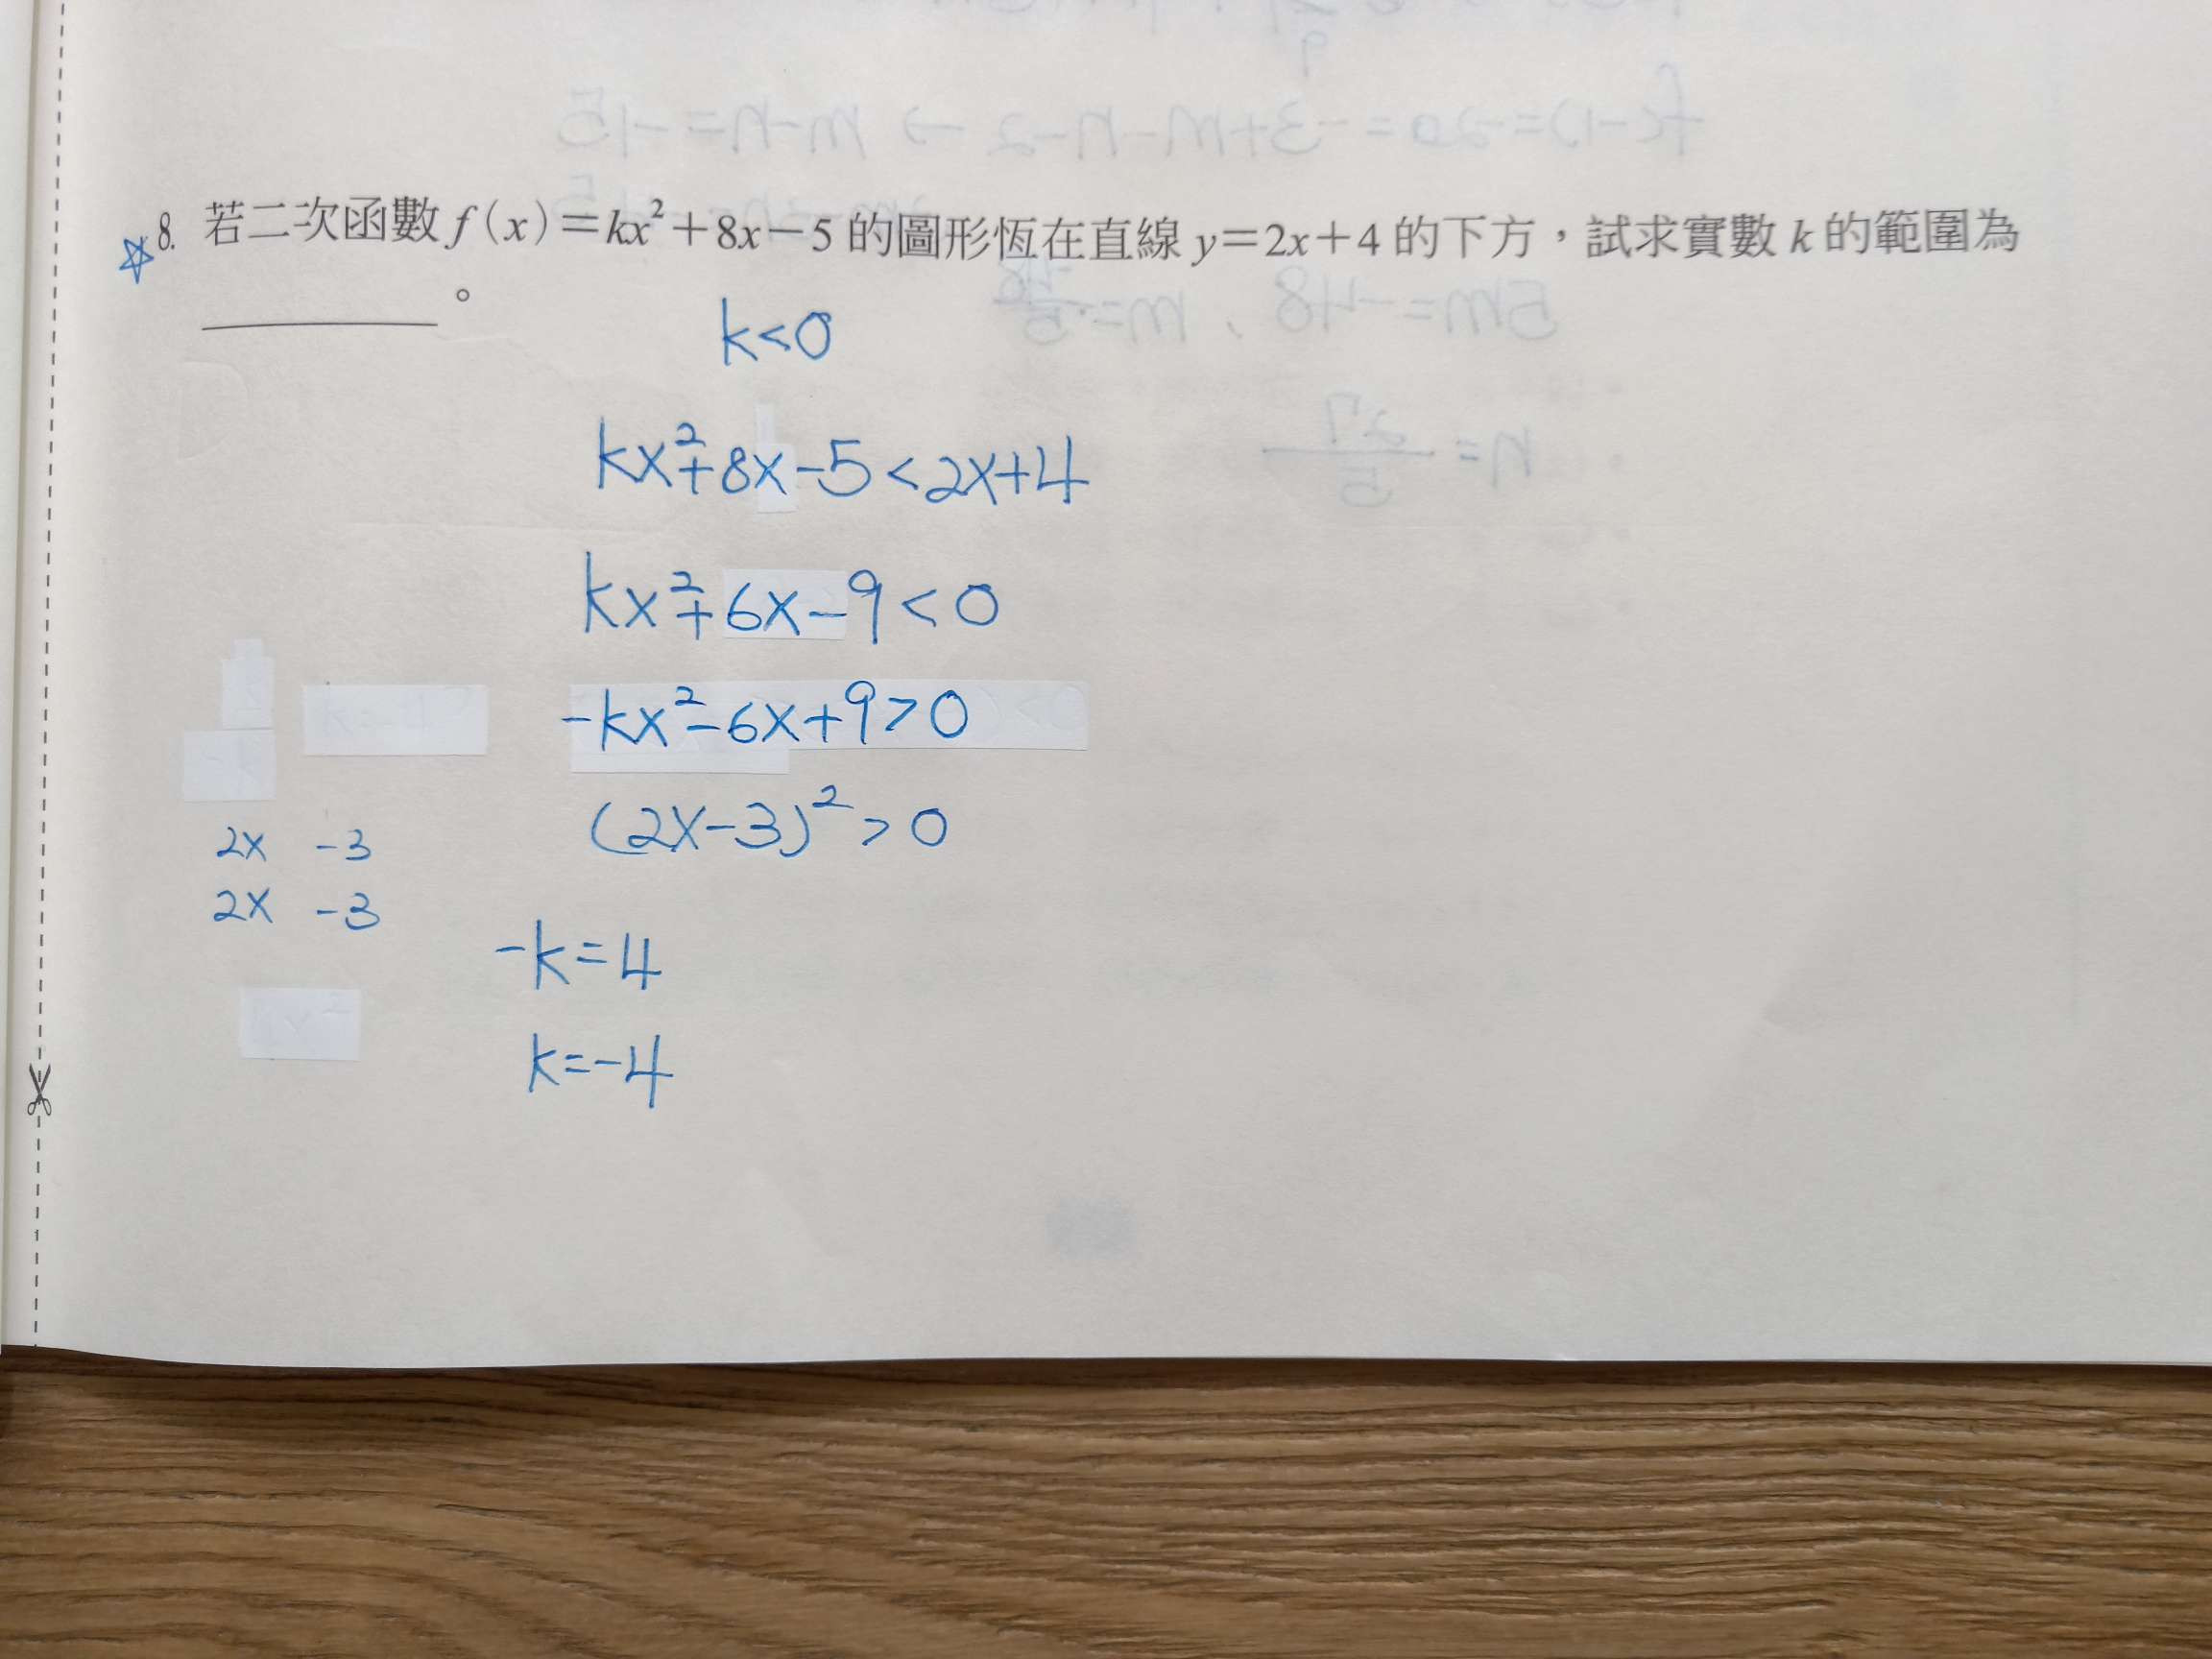 8. 若二次函數 f(x)=kx²+8x-5 的圖形恆在直線 y=2x+4 的下方，試求實數 k 的範圍為
________。
k<0
kx²+8x-5<2x+4
kx²+6x-9<0
-kx²-6x+9>0
(2x-3)²>0
2x -3
2x -3
-k=4
k=-4